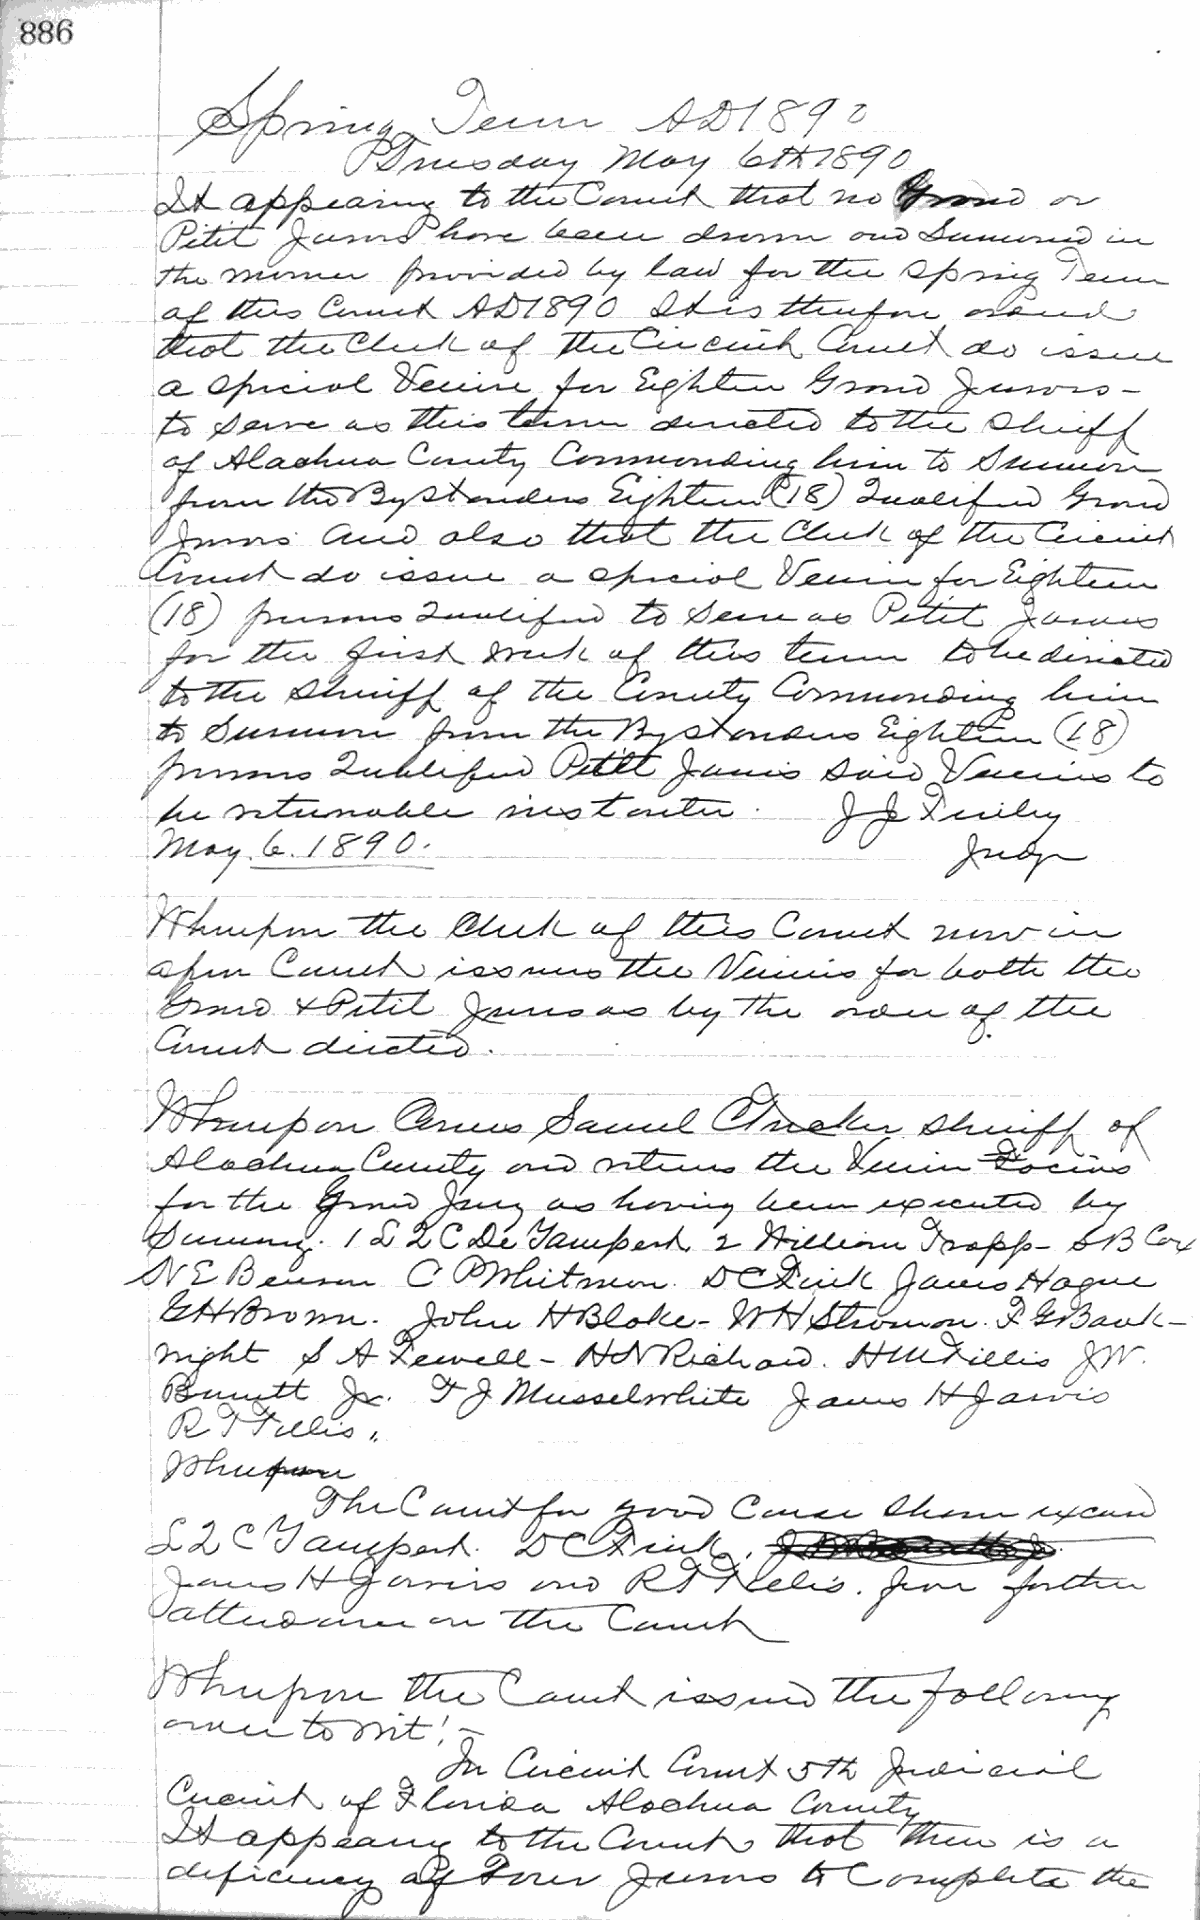 886
Spring Term AD 1890
Tuesday May 6th 1890
It appearing to the Court that no Grand or
Petit Jurors have been drawn and Sumoned in
the manner provided by law for the Spring Term
of this Court AD 1890 It is therefore ordered
that the Clerk of the Circuit Court do issue
a Special Venire for Eighteen Grand Jurors -
to serve as this term directed to the Sheriff
of Alachua County Commanding him to Summon
from the Bystanders Eighteen (18) Qualified Grand
Jurors and also that the Clerk of the Circuit
Court do issue a special Venire for Eighteen
(18) persons Qualified to Serve as Petit Jurors
for the first week of this term to be directed
to the Sheriff of the County Commanding him
to Summon from the Bystanders Eighteen (18)
persons Qualified Petit Jurors Said Venires to
be returnable instanter. J J Finley
May. 6. 1890. Judge
Whereupon the Clerk of this Court now in
open Court issues the Venires for both the
Grand & Petit Jurors as by the order of the
Court directed.
Whereupon Comes Samuel C Tucker Sheriff of
Alachua County and returns the Venire Facias
for the Grand Jury as having been executed by
Summing. 1 L Q C De Yampert, 2 William Trapp - B Cox
N E Benson C P Whitmon. D C Fink James Hague
G H Brown. John H Blake - W H Stroman. F G Bauk-
night S A Fewell - H N Richard. H M Tillis J W.
Burnett Jr. T J Musselwhite James H Jarvis
R T Tillis.
Whereupon
The Court for good Cause Shown excused
L Q C Yampert. D C Fink,
James H Jarvis and R T Tillis. from further
attendance on the Court
Whereupon the Court issued the following
order to wit! -
In Circuit Court 5th Judicial
Circuit of Florida Alachua County
It appearing to the Court that there is a
deficiency of Four Jurors to Complete the